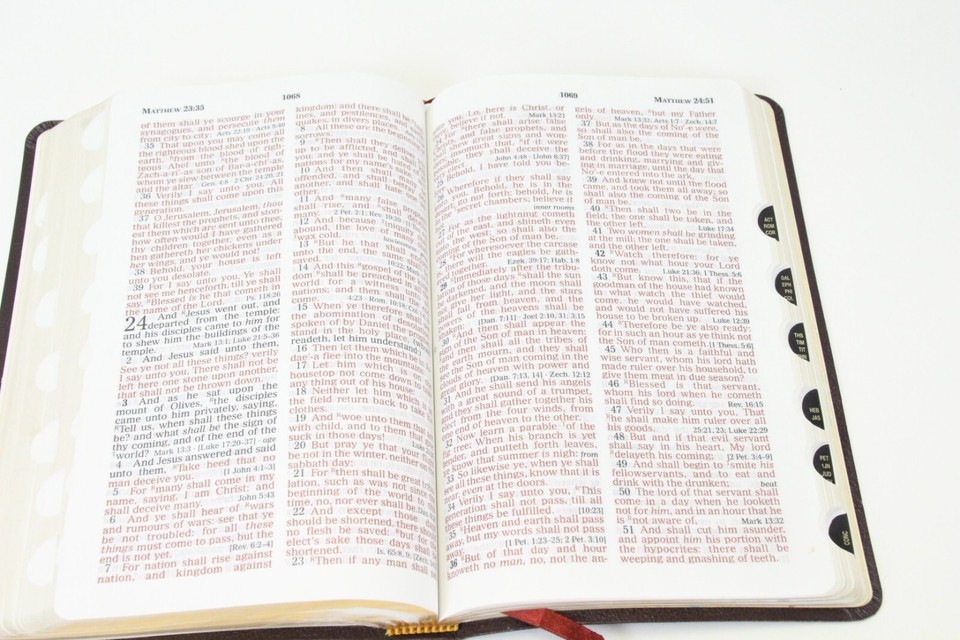 MATTHEW 23:35
1068
of them shall ye scourge in your
synagogues, and persecute them
from city to city: Acts 22:19 · Acts 5:40
35 That upon you may come all
the righteous blood shed upon the
earth, from the blood of righ-
teous Abel unto the blood of
Zach-a-ri'-as son of Bar-a-chi'-as,
whom ye slew between the temple
and the altar. Gen. 4:8 · 2 Chr. 24:20, 21
36 Verily I say unto you, All
these things shall come upon this
generation.
37 O Jerusalem, Jerusalem, thou
that killest the prophets, and ston-
est them which are sent unto thee,
how often would I have gathered
thy children together, even as a
hen gathereth her chickens under
her wings, and ye would not!
38 Behold, your house is left
unto you desolate.
39 For I say unto you, Ye shall
not see me henceforth, till ye shall
say, Blessed is he that cometh in
the name of the Lord. Ps. 118:26
24 And Jesus went out, and
departed from the temple:
and his disciples came to him for
to shew him the buildings of the
temple. Mark 13:1; Luke 21:5–36
2 And Jesus said unto them,
See ye not all these things? verily
I say unto you, There shall not be
left here one stone upon another,
that shall not be thrown down.
3 And as he sat upon the
mount of Olives, the disciples
came unto him privately, saying,
Tell us, when shall these things
be? and what shall be the sign of
thy coming, and of the end of the
world? Mark 13:3 · [Luke 17:20–37] · age
4 And Jesus answered and said
unto them, Take heed that no
man deceive you. [1 John 4:1–3]
5 For many shall come in my
name, saying, I am Christ; and
shall deceive many. John 5:43
6 And ye shall hear of wars
and rumours of wars: see that ye
be not troubled: for all these
things must come to pass, but the
end is not yet. [Rev. 6:2–4]
7 For nation shall rise against
nation, and kingdom against
kingdom: and there shall be
ines, and pestilences, and
quakes, in divers places.
8 All these are the
sorrows.
9 Then shall they
up to be afflicted, and shall
you: and ye shall be hated
nations for my name's
10 And then shall
offended, and shall betray
another, and shall hate
other.
11 And many false
shall rise, and shall
2 Pet. 2:1; Rev. 13:11
12 And because iniquity
abound, the love of many
wax cold.
13 But he that shall
unto the end, the same
saved.
14 And this gospel of the
dom shall be preached in
world for a witness unto
nations; and then shall the
come. 4:23 · Rom. 10:18; Col.
15 When ye therefore shall
the abomination of desolation,
spoken of by Daniel the prophet,
stand in the holy place, (whoso
readeth, let him understand:)
16 Then let them which be in
dae'-a flee into the mountains:
17 Let him which is on the
housetop not come down to
any thing out of his house:
18 Neither let him which is in
the field return back to take his
clothes.
19 And woe unto them that are
with child, and to them that give
suck in those days!
20 But pray ye that your flight
be not in the winter, neither on the
sabbath day:
21 For then shall be great tribu-
lation, such as was not since the
beginning of the world to this
time, no, nor ever shall be.
22 And except those days
should be shortened, there should
no flesh be saved: but for the
elect's sake those days shall be
shortened. Is. 65:8, 9; [Zech.
23 Then if any man shall say
1069
MATTHEW 24:51
you, Lo, here is Christ, or
believe it not. Mark 13:21
there shall arise false
and false prophets, and
shew great signs
insomuch that, if it were
they shall deceive the
John 4:48 · [John 6:37]
Behold, I have told you be-
Wherefore if they shall say
you, Behold, he is in the
go not forth: behold, he is
secret chambers; believe it
inner rooms
For as the lightning cometh
of the east, and shineth even
the west; so shall also the
of the Son of man be.
28 For wheresoever the carcase
there will the eagles be gath-
together. Ezek. 39:17; Hab. 1:8
29 Immediately after the tribu-
lation of those days shall the sun
darkened, and the moon shall
give her light, and the stars
fall from heaven, and the
of the heavens shall be
[Dan. 7:11] · Joel 2:10, 31; 3:15
And then shall appear the
of the Son of man in heaven:
then shall all the tribes of
earth mourn, and they shall
the Son of man coming in the
clouds of heaven with power and
glory. [Dan. 7:13, 14] · Zech. 12:12
31 And he shall send his angels
a great sound of a trumpet,
they shall gather together his
elect from the four winds, from
end of heaven to the other.
32 Now learn a parable of the
tree; When his branch is yet
tender, and putteth forth leaves,
know that summer is nigh: from
33 So likewise ye, when ye shall
see all these things, know that it is
near, even at the doors.
34 Verily I say unto you, This
generation shall not pass, till all
these things be fulfilled. [10:23]
35 Heaven and earth shall pass
away, but my words shall not pass
away. [1 Pet. 1:23–25; 2 Pet. 3:10]
36 But of that day and hour
knoweth no man, no, not the an-
gels of heaven, but my Father
only. Mark 13:32; Acts 1:7 · Zech. 14:7
37 But as the days of No'-e were,
so shall also the coming of the
Son of man be.
38 For as in the days that were
before the flood they were eating
and drinking, marrying and giv-
ing in marriage, until the day that
No'-e entered into the ark,
39 And knew not until the flood
came, and took them all away; so
shall also the coming of the Son
of man be.
40 Then shall two be in the
field; the one shall be taken, and
the other left. Luke 17:34
41 Two women shall be grinding
at the mill; the one shall be taken,
and the other left.
42 Watch therefore: for ye
know not what hour your Lord
doth come. Luke 21:36; 1 Thess. 5:6
43 But know this, that if the
goodman of the house had known
in what watch the thief would
come, he would have watched,
and would not have suffered his
house to be broken up. Luke 12:39
44 Therefore be ye also ready:
for in such an hour as ye think not
the Son of man cometh. [1 Thess. 5:6]
45 Who then is a faithful and
wise servant, whom his lord hath
made ruler over his household, to
give them meat in due season?
46 Blessed is that servant,
whom his lord when he cometh
shall find so doing. Rev. 16:15
47 Verily I say unto you, That
he shall make him ruler over all
his goods. 25:21, 23; Luke 22:29
48 But and if that evil servant
shall say in his heart, My lord
delayeth his coming; [2 Pet. 3:4–9]
49 And shall begin to smite his
fellowservants, and to eat and
drink with the drunken; beat
50 The lord of that servant shall
come in a day when he looketh
not for him, and in an hour that he
is not aware of, Mark 13:32
51 And shall cut him asunder,
and appoint him his portion with
the hypocrites: there shall be
weeping and gnashing of teeth.
ACT
ROM
COR
GAL
EPH
PHI
COL
THS
TIM
TIT
HEB
JAS
PET
1JN
JUD
CONC